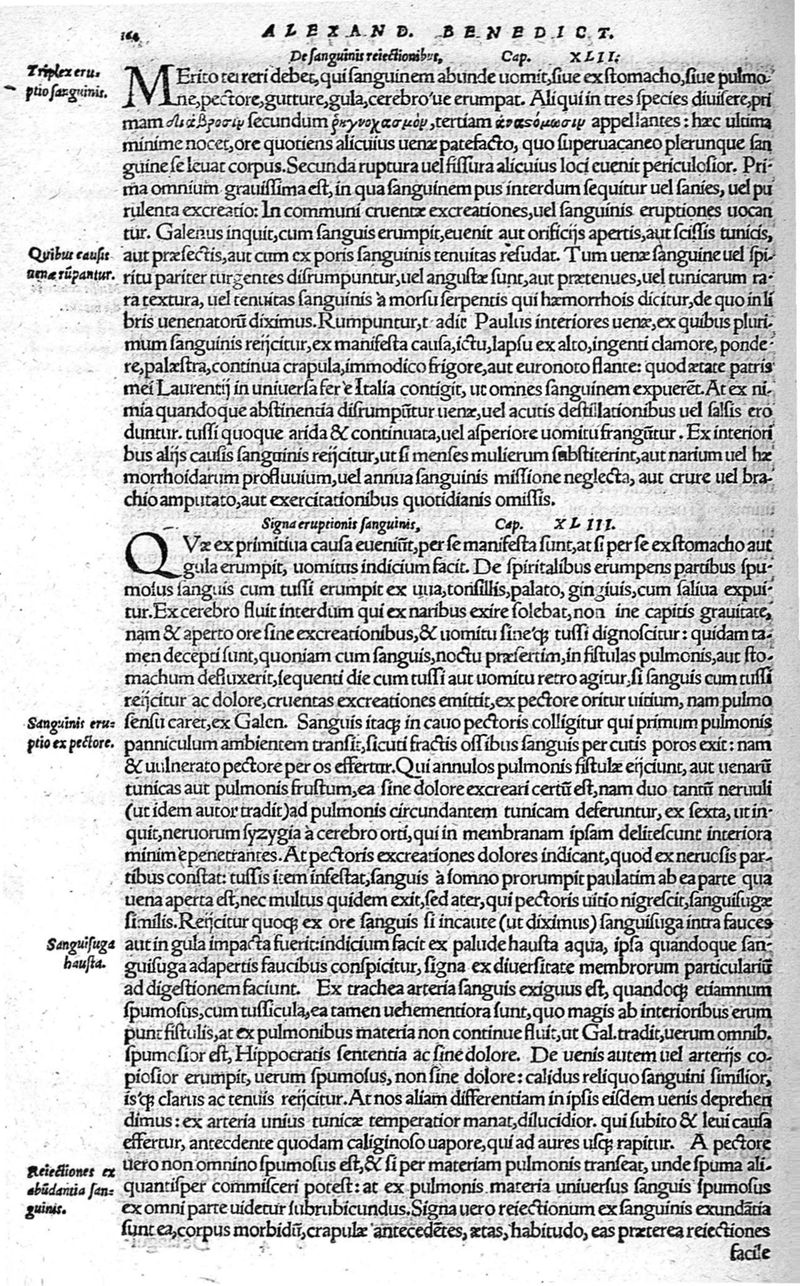 164 ALEXAND. BENEDICT.
De sanguinis reiectionibus, Cap. XLII.
Triplex eru=
ptio sanguinis.
MErito terreri debet, qui sanguinem abunde uomit, siue ex stomacho, siue pulmo-
ne, pectore, gutture, gula, cerebro'ue erumpat. Aliqui in tres species diuisere, pri
mam διάβροσιν secundum ῥηγνοχασμόν, tertiam ἀναστόμωσιν appellantes: hæc ultima
minime nocet, ore quotiens alicuius uenæ patefacto, quo superuacaneo plerunque san
guine se leuat corpus. Secunda ruptura uel fissura alicuius loci euenit periculosior. Pri-
ma omnium grauissima est, in qua sanguinem pus interdum sequitur uel sanies, uel pu
rulenta excreatio: In communi cruentæ excreationes, uel sanguinis eruptiones uocan
tur. Galenus inquit, cum sanguis erumpit, euenit aut orificijs apertis, aut scissis tunicis,
Quibus causis
uenæ rūpantur.
aut præsectis, aut cum ex poris sanguinis tenuitas resudat. Tum uenæ sanguine uel spi-
ritu pariter turgentes disrumpuntur, uel angustæ sunt, aut prætenues, uel tunicarum ra-
ra textura, uel tenuitas sanguinis à morsu serpentis qui hæmorrhois dicitur, de quo in li
bris uenenatorū diximus. Rumpuntur, t adit Paulus interiores uenæ, ex quibus pluri-
mum sanguinis reijcitur, ex manifesta causa, ictu, lapsu ex alto, ingenti clamore, ponde-
re, palæstra, continua crapula, immodico frigore, aut euronoto flante: quod ætate patris
mei Laurentij in uniuersa fer'e Italia contigit, ut omnes sanguinem expuerēt. At ex ni-
mia quandoque abstinentia disrumpūtur uenæ, uel acutis destillationibus uel salsis ero
duntur. tussi quoque arida & continuata, uel asperiore uomitu frangūtur. Ex interiori
bus alijs causis sanguinis reijcitur, ut si menses mulierum substiterint, aut narium uel hæ
morrhoidarum profluuium, uel annua sanguinis missione neglecta, aut crure uel bra-
chio amputato, aut exercitationibus quotidianis omissis.
Signa eruptionis sanguinis, Cap. XLIII.
QVæ ex primitiua causa eueniūt, per se manifesta sunt, at si per se ex stomacho aut
gula erumpit, uomitus indicium facit. De spiritalibus erumpens partibus spu-
mosus sanguis cum tussi erumpit ex uua, tonsillis, palato, gingiuis, cum saliua expui-
tur. Ex cerebro fluit interdum qui ex naribus exire solebat, non ine capitis grauitate,
nam & aperto ore sine excreationibus, & uomitu sineq; tussi dignoscitur: quidam ta-
men decepti sunt, quoniam cum sanguis, noctu præsertim, in fistulas pulmonis, aut sto-
machum defluxerit, sequenti die cum tussi aut uomitu retro agitur, si sanguis cum tussi
reijcitur ac dolore, cruentas excreationes emittit, ex pectore oritur uitium, nam pulmo
Sanguinis eru=
ptio ex pectore.
sensu caret, ex Galen. Sanguis itaq; in cauo pectoris colligitur qui primum pulmonis
panniculum ambientem transit, sicuti fractis ossibus sanguis per cutis poros exit: nam
& uulnerato pectore per os effertur. Qui annulos pulmonis fistulæ eijciunt, aut uenarū
tunicas aut pulmonis frustum, ea sine dolore excreari certū est, nam duo tantū neruuli
(ut idem autor tradit) ad pulmonis circundantem tunicam deferuntur, ex sexta, ut in-
quit, neruorum syzygia à cerebro orti, qui in membranam ipsam delitescunt interiora
minim'e penetrantes. At pectoris excreationes dolores indicant, quod ex neruosis par-
tibus constat: tussis item infestat, sanguis à somno prorumpit paulatim ab ea parte qua
uena aperta est, nec multus quidem exit, sed ater, qui pectoris uitio nigrescit, sanguisugæ
similis. Reijcitur quoq; ex ore sanguis si incaute (ut diximus) sanguisuga intra fauces
Sanguisuga
hausta.
aut in gula impacta fuerit: indicium facit ex palude hausta aqua, ipsa quandoque san-
guisuga adapertis faucibus conspicitur, signa ex diuersitate membrorum particulariū
ad digestionem faciunt. Ex trachea arteria sanguis exiguus est, quandoq; etiamnum
spumosus, cum tussicula, ea tamen uehementiora sunt, quo magis ab interioribus erum
punt fistulis, at ex pulmonibus materia non continue fluit, ut Gal. tradit, uerum omnib.
spumosior est, Hippocratis sententia ac sine dolore. De uenis autem uel arterijs co-
piosior erumpit, uerum spumosus, non sine dolore: calidus reliquo sanguini similior,
isq; clarus ac tenuis reijcitur. At nos aliam differentiam in ipsis eisdem uenis deprehen
dimus: ex arteria unius tunicæ temperatior manat, dilucidior. qui subito & leui causa
effertur, antecdente quodam caliginoso uapore, qui ad aures usq; rapitur. A pectore
Reiectiones ex
abūdantia san=
guinis.
uero non omnino spumosus est, & si per materiam pulmonis transeat, unde spuma ali-
quantisper commisceri potest: at ex pulmonis materia uniuersus sanguis spumosus
ex omni parte uidetur subrubicundus. Signa uero reiectionum ex sanguinis exundātia
sunt ea, corpus morbidū, crapulæ antecedētes, ætas, habitudo, eas præterea reiectiones
facile